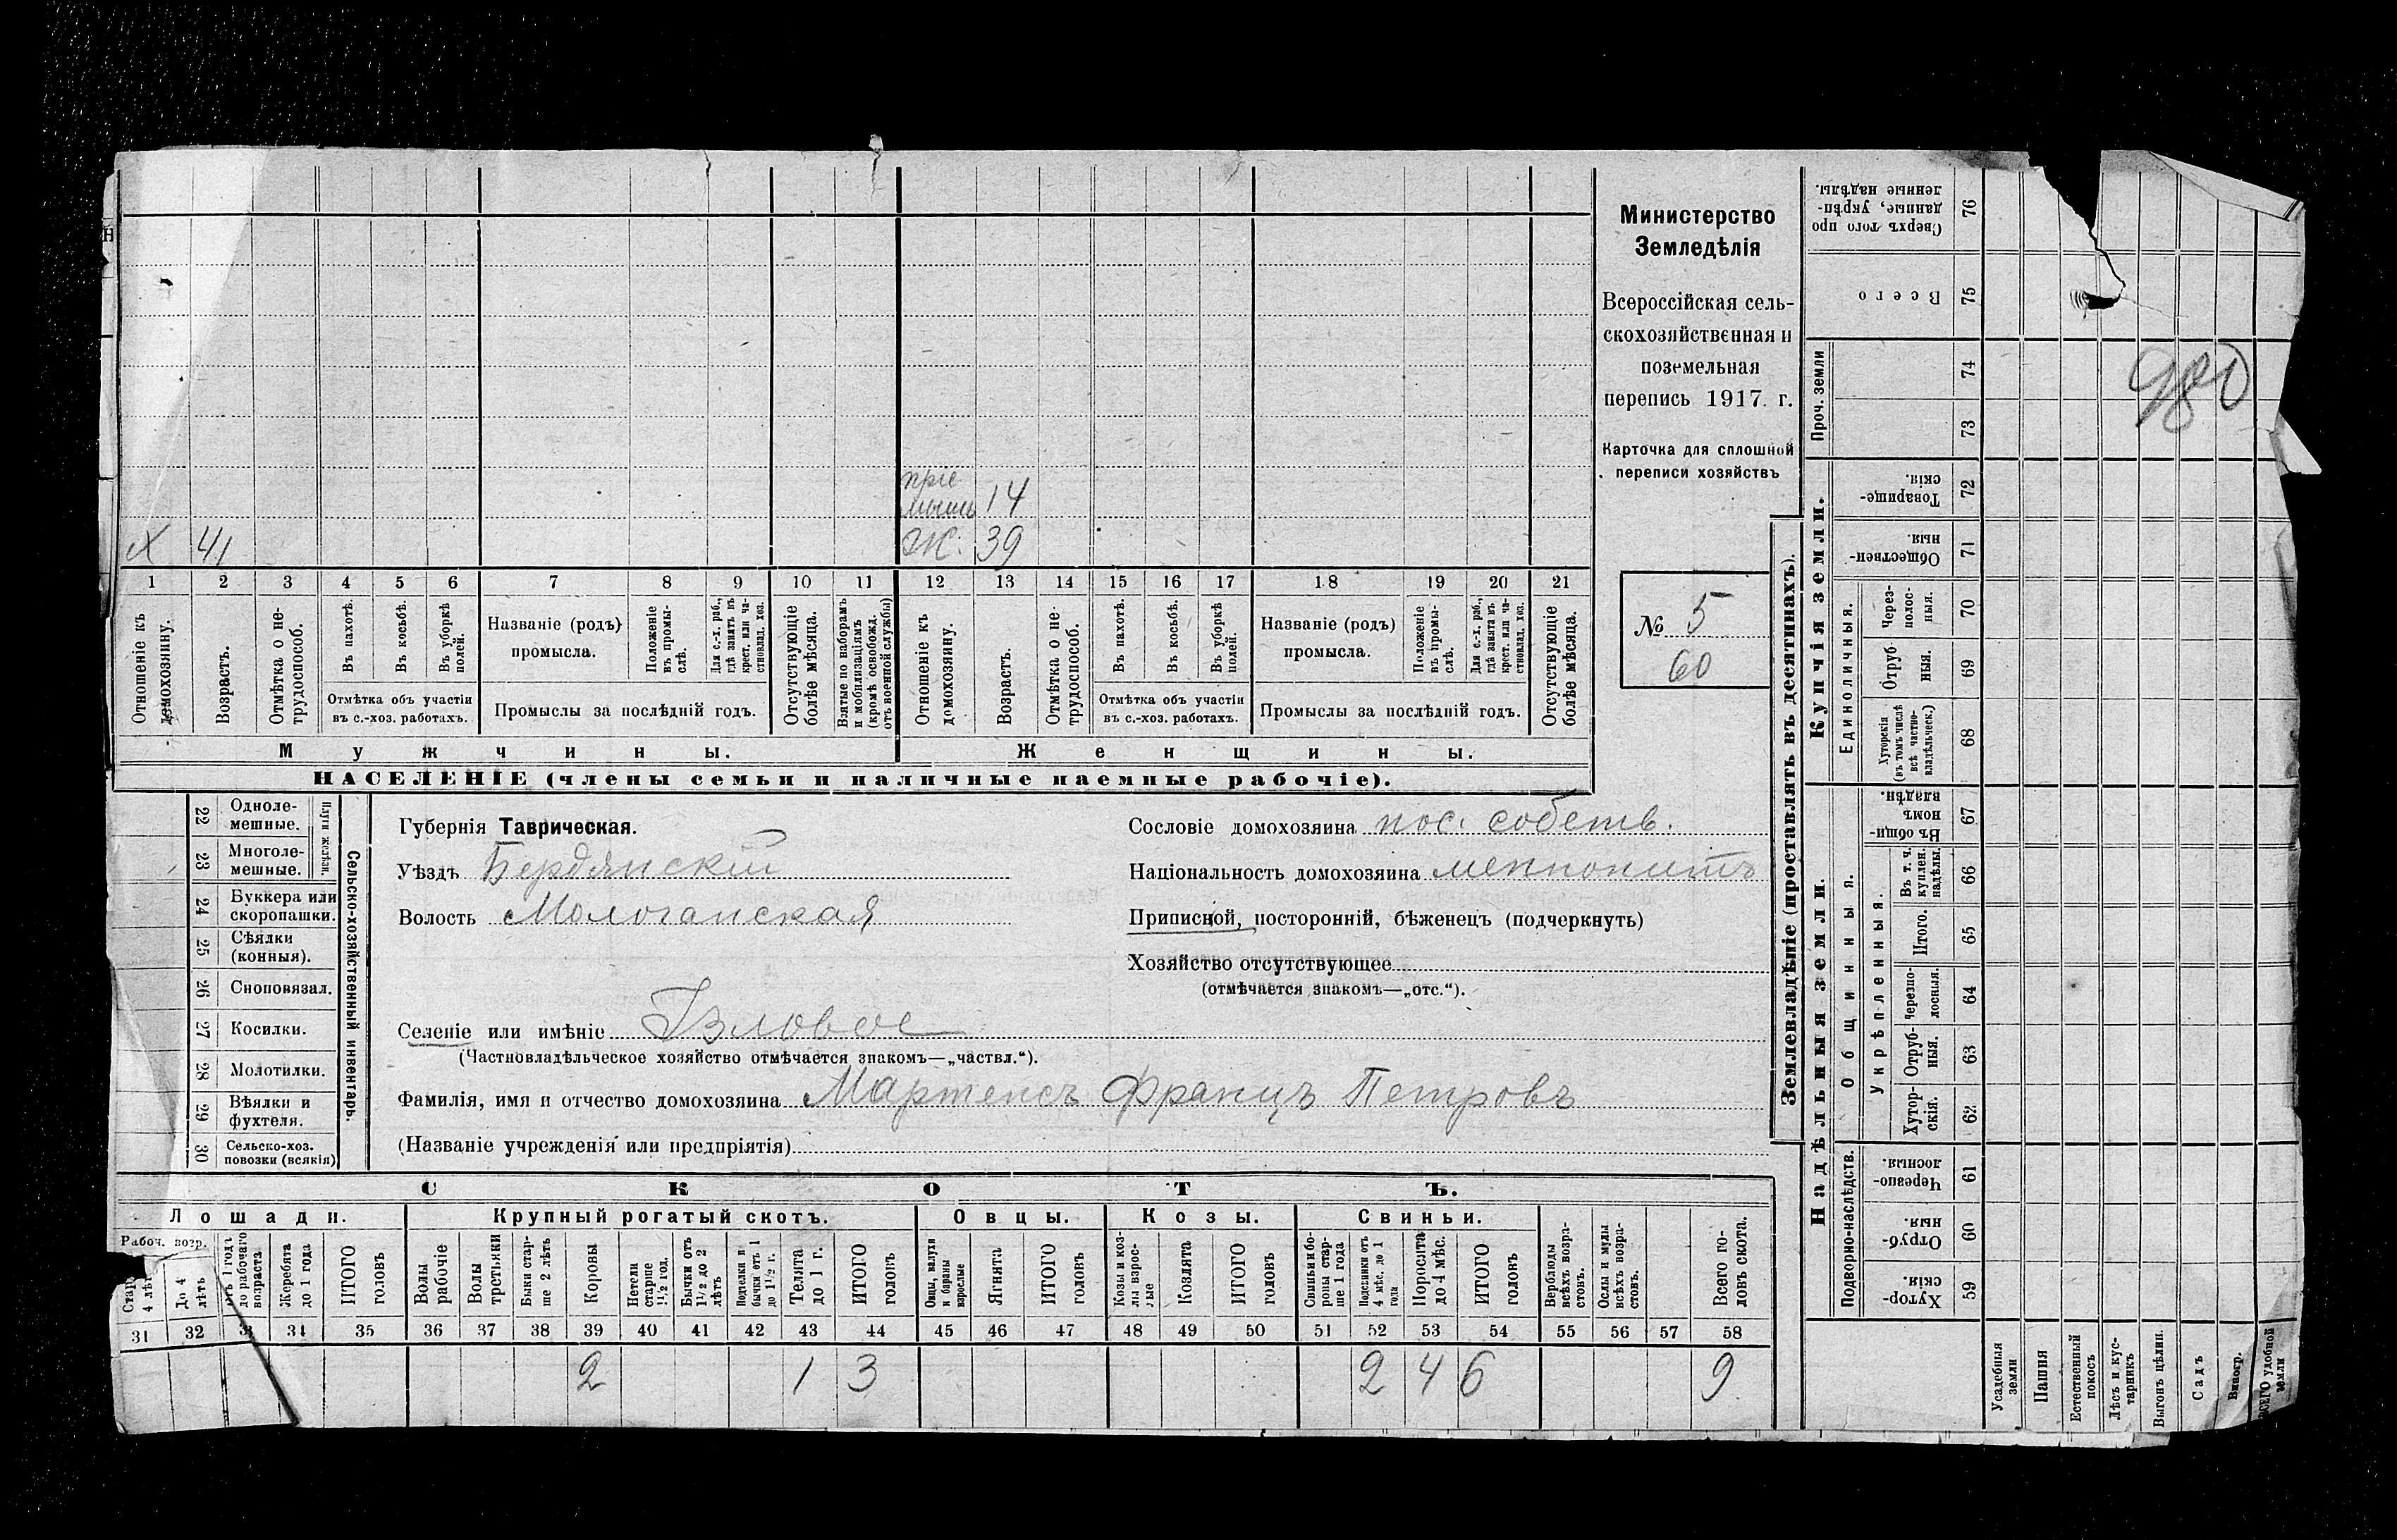 Министерство
Земледѣлія
Всероссійская сель-
скохозяйственная и
поземельная
перепись 1917 г.
Карточка для сплошной
переписи хозяйствъ
№ 5
60
прие
мыш 14
х 41
Ж. 39
1 2 3 4 5 6 7 8 9 10 11 12 13 14 15 16 17 18 19 20 21
Отношеніе къ домохозяину.
Возрастъ.
Отмѣтка о не-трудоспособ.
Въ пахотѣ.
Въ косьбѣ.
Въ уборкѣ полей.
Отмѣтка объ участіи
въ с.-хоз. работахъ.
Названіе (родъ)
промысла.
Положеніе въ промы-слѣ.
Для с.-х. раб., гдѣ занятъ въ крест. или ча-стновлад. хоз.
Промыслы за послѣдній годъ.
Отсутствующіе болѣе мѣсяца.
Взятые по наборамъ и мобилизаціямъ (кромѣ освобожд. отъ военной службы)
Отношеніе къ домохозяину.
Возрастъ.
Отмѣтка о не-трудоспособ.
Въ пахотѣ.
Въ косьбѣ.
Въ уборкѣ полей.
Отмѣтка объ участіи
въ с.-хоз. работахъ.
Названіе (родъ)
промысла.
Положеніе въ промы-слѣ.
Для с.-х. раб., гдѣ занята въ крест. или ча-стновлад. хоз.
Промыслы за послѣдній годъ.
Отсутствующіе болѣе мѣсяца.
Мужчины.
Женщины.
НАСЕЛЕНІЕ (члены семьи и наличные наемные рабочіе).
22 Одноле-
мешные.
23 Многоле-
мешные.
Плуги желѣзн.
24 Буккера или
скоропашки.
25 Сѣялки
(конныя).
26 Сноповязал.
27 Косилки.
28 Молотилки.
29 Вѣялки и
фухтеля.
30 Сельско-хоз.
повозки (всякія)
Сельско-хозяйственный инвентарь.
Губернія Таврическая.
Уѣздъ Бердянскій
Волость Мологанская
Селеніе или имѣніе Узловое
(Частновладѣльческое хозяйство отмѣчается знакомъ—„частвл.“).
Фамилія, имя и отчество домохозяина Мартенсъ Францъ Петровъ
(Названіе учрежденія или предпріятія)
Сословіе домохозяина пос. собств.
Національность домохозяина меннонитъ
Приписной, посторонній, бѣженецъ (подчеркнуть)
Хозяйство отсутствующее
(отмѣчается знакомъ—„отс.“).
СКОТЪ.
Лошади. Крупный рогатый скотъ. Овцы. Козы. Свиньи.
Рабоч. возр.
До 4 лѣтъ
Отъ 1 года до рабочаго возраста
Жеребята до 1 года
ИТОГО головъ
Волы рабочіе
Волы третьяки
Быки стар-ше 2 лѣтъ
Коровы
Нетели старше 1½ год.
Бычки отъ 1½ до 2 лѣтъ
Подтелки и бычки отъ 1 до 1½ г.
Телята до 1 г.
ИТОГО головъ
Овцы, валухи и бараны взрослые
Ягнята
ИТОГО головъ
Козы и коз-лы взрос-лые
Козлята
ИТОГО головъ
Свиньи и бо-ровы стар-ше 1 года
Подсвинки отъ 4 мѣс. до 1 года
Поросята до 4 мѣс.
ИТОГО головъ
Верблюды всѣхъ возра-стовъ.
Ослы и мулы всѣхъ возра-стовъ.
Всего го-ловъ скота.
31 32 33 34 35 36 37 38 39 40 41 42 43 44 45 46 47 48 49 50 51 52 53 54 55 56 57 58
2 1 3 2 4 6 9
Землевладѣніе (проставлять въ десятинахъ).
Надѣльныя земли.
Купчія земли.
Проч. земли
Подворно-наслѣдств.
Общинныя.
Укрѣпленныя.
Единоличныя.
Сверхъ того про данные, укрѣп-ленные надѣлы. 76
Всего 75
74
73
Товарище-скія. 72
Обществен-ныя. 71
Через-полос-ныя. 70
Отруб-ныя. 69
Хуторскія (въ томъ числѣ всѣ частно-владѣльческ.) 68
Въ общи-номъ владѣн. 67
Въ т. ч. куплен. надѣлы. 66
Итого. 65
Черезпо-лосныя. 64
Отруб-ныя. 63
Хутор-скія. 62
Черезпо-лосныя. 61
Отруб-ныя. 60
Хутор-скія. 59
Усадебныя земли
Пашня
Естественный покосъ
Лѣсъ и кус-тарникъ
Выгонъ цѣлин.
Садъ
Виногр.
ВСЕГО удобной земли
980